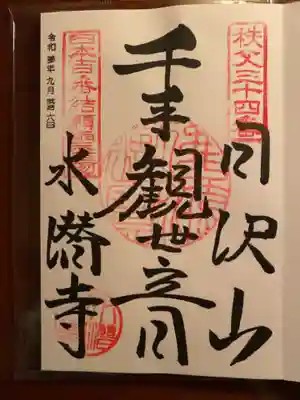 秩父三十四番
日沢山
千手観世音
日本百番結願
水潜寺
令和 年 九月 六日